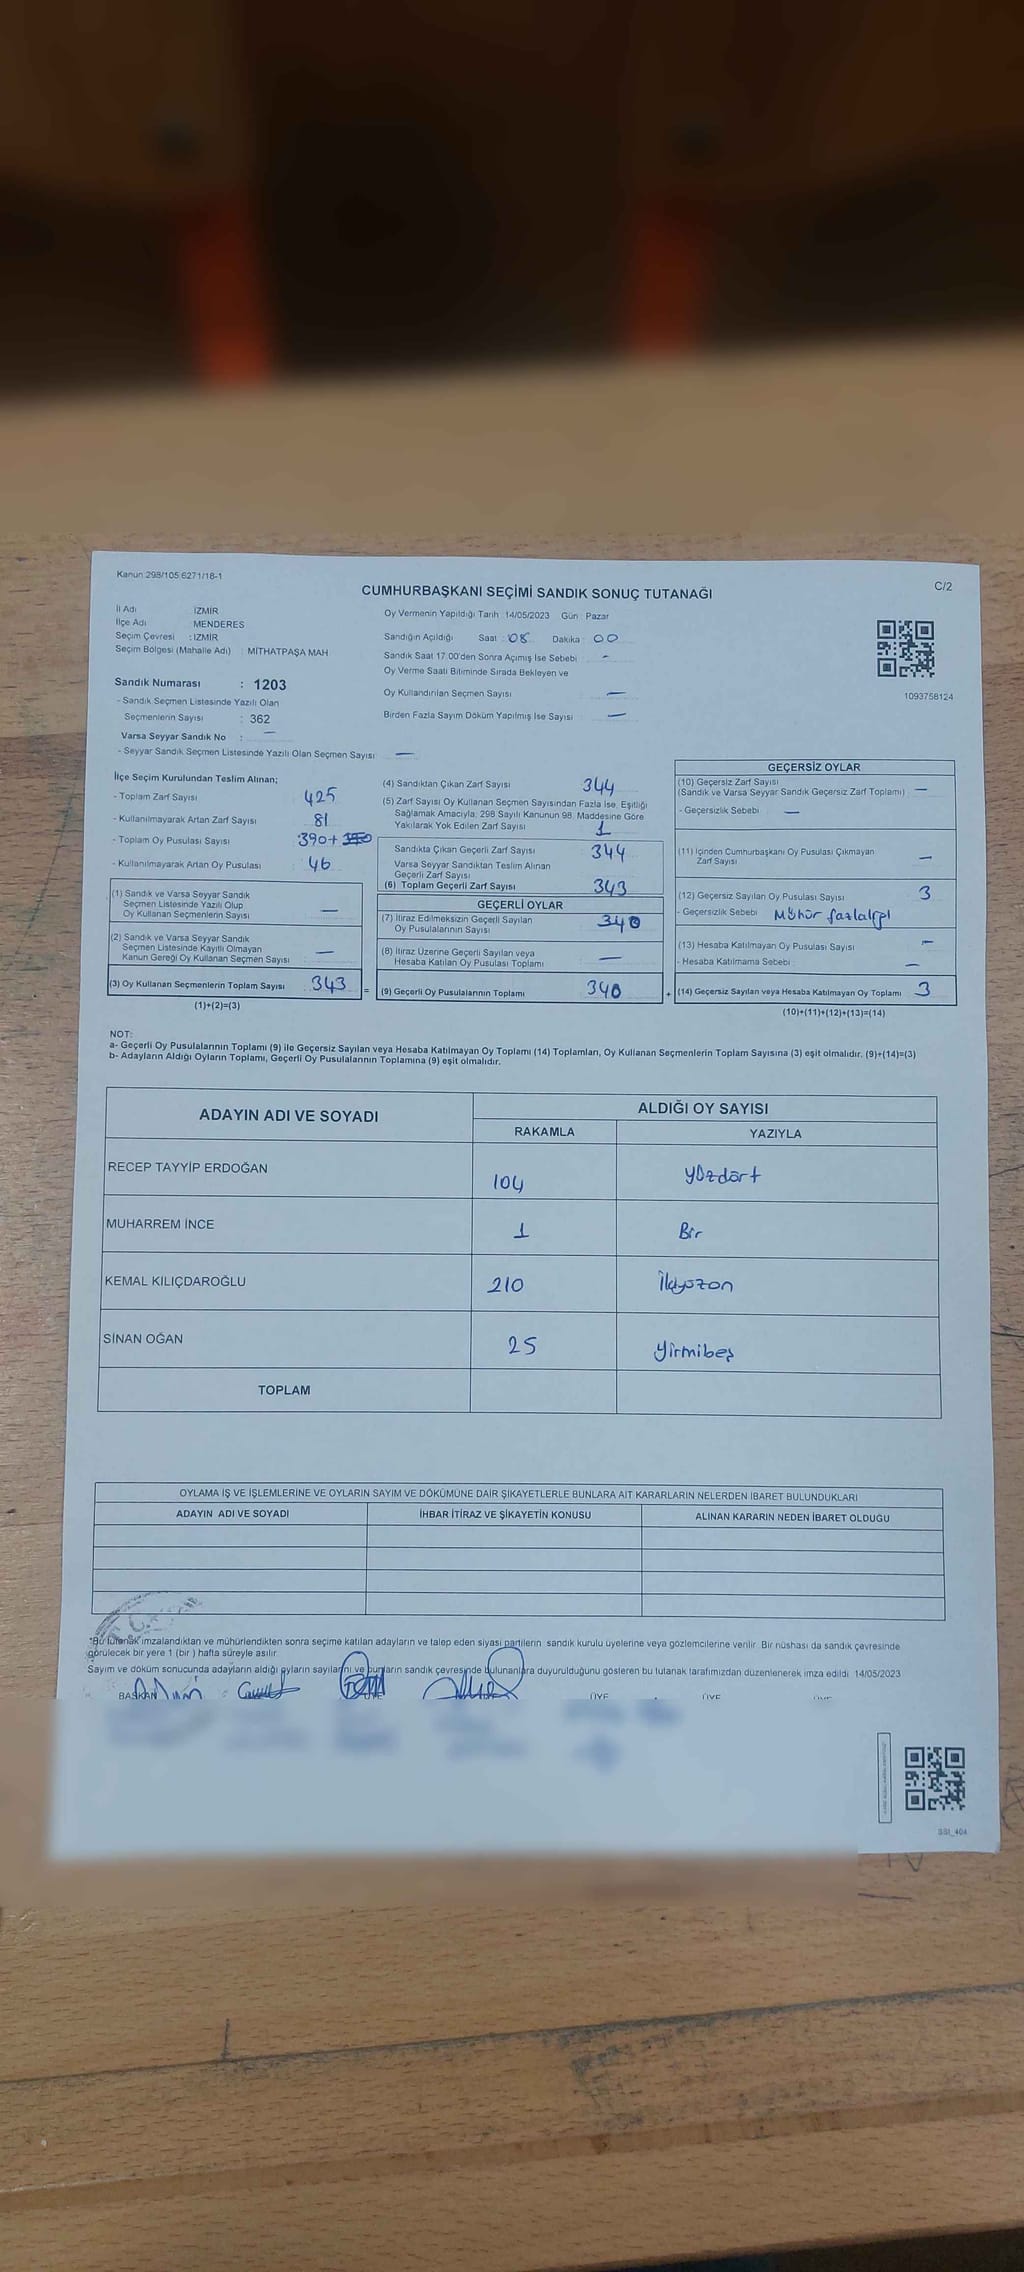 Kanun:298/105 6271/18-1
C/2
CUMHURBAŞKANI SEÇİMİ SANDIK SONUÇ TUTANAĞI
İl Adı İZMİR
İlçe Adı MENDERES
Seçim Çevresi : İZMİR
Seçim Bölgesi (Mahalle Adı) : MİTHATPAŞA MAH
Sandık Numarası : 1203
- Sandık Seçmen Listesinde Yazılı Olan
Seçmenlerin Sayısı : 362
Varsa Seyyar Sandık No : —
- Seyyar Sandık Seçmen Listesinde Yazılı Olan Seçmen Sayısı —
Oy Vermenin Yapıldığı Tarih 14/05/2023 Gün Pazar
Sandığın Açıldığı Saat : 08 Dakika : 00
Sandık Saat 17:00'den Sonra Açımış İse Sebebi -
Oy Verme Saati Bitiminde Sırada Bekleyen ve
Oy Kullandırılan Seçmen Sayısı —
Birden Fazla Sayım Döküm Yapılmış İse Sayısı —
1093758124
İlçe Seçim Kurulundan Teslim Alınan;
- Toplam Zarf Sayısı 425
- Kullanılmayarak Artan Zarf Sayısı 81
- Toplam Oy Pusulası Sayısı 390+
- Kullanılmayarak Artan Oy Pusulası 46
(1) Sandık ve Varsa Seyyar Sandık
Seçmen Listesinde Yazılı Olup
Oy Kullanan Seçmenlerin Sayısı —
(2) Sandık ve Varsa Seyyar Sandık
Seçmen Listesinde Kayıtlı Olmayan
Kanun Gereği Oy Kullanan Seçmen Sayısı —
(3) Oy Kullanan Seçmenlerin Toplam Sayısı 343 =
(1)+(2)=(3)
(4) Sandıktan Çıkan Zarf Sayısı 344
(5) Zarf Sayısı Oy Kullanan Seçmen Sayısından Fazla İse, Eşitliği
Sağlamak Amacıyla, 298 Sayılı Kanunun 98. Maddesine Göre
Yakılarak Yok Edilen Zarf Sayısı 1
Sandıkta Çıkan Geçerli Zarf Sayısı 344
Varsa Seyyar Sandıktan Teslim Alınan
Geçerli Zarf Sayısı
(6) Toplam Geçerli Zarf Sayısı 343
GEÇERLİ OYLAR
(7) İtiraz Edilmeksizin Geçerli Sayılan
Oy Pusulalarının Sayısı 340
(8) İtiraz Üzerine Geçerli Sayılan veya
Hesaba Katılan Oy Pusulası Toplamı —
(9) Geçerli Oy Pusulalarının Toplamı 340 +
GEÇERSİZ OYLAR
(10) Geçersiz Zarf Sayısı
(Sandık ve Varsa Seyyar Sandık Geçersiz Zarf Toplamı) —
- Geçersizlik Sebebi —
(11) İçinden Cumhurbaşkanı Oy Pusulası Çıkmayan
Zarf Sayısı —
(12) Geçersiz Sayılan Oy Pusulası Sayısı 3
- Geçersizlik Sebebi Mühür
(13) Hesaba Katılmayan Oy Pusulası Sayısı —
- Hesaba Katılmama Sebebi —
(14) Geçersiz Sayılan veya Hesaba Katılmayan Oy Toplamı 3
(10)+(11)+(12)+(13)=(14)
NOT:
a- Geçerli Oy Pusulalarının Toplamı (9) ile Geçersiz Sayılan veya Hesaba Katılmayan Oy Toplamı (14) Toplamları, Oy Kullanan Seçmenlerin Toplam Sayısına (3) eşit olmalıdır. (9)+(14)=(3)
b- Adayların Aldığı Oyların Toplamı, Geçerli Oy Pusulalarının Toplamına (9) eşit olmalıdır.
ADAYIN ADI VE SOYADI
ALDIĞI OY SAYISI
RAKAMLA YAZIYLA
RECEP TAYYİP ERDOĞAN 104 yüzdört
MUHARREM İNCE 1 Bir
KEMAL KILIÇDAROĞLU 210 İkiyüzon
SİNAN OĞAN 25 yirmibeş
TOPLAM
OYLAMA İŞ VE İŞLEMLERİNE VE OYLARIN SAYIM VE DÖKÜMÜNE DAİR ŞİKAYETLERLE BUNLARA AİT KARARLARIN NELERDEN İBARET BULUNDUKLARI
ADAYIN ADI VE SOYADI İHBAR İTİRAZ VE ŞİKAYETİN KONUSU ALINAN KARARIN NEDEN İBARET OLDUĞU
T.C.
*Bu tutanak imzalandıktan ve mühürlendikten sonra seçime katılan adayların ve talep eden siyasi partilerin sandık kurulu üyelerine veya gözlemcilerine verilir. Bir nüshası da sandık çevresinde
görülecek bir yere 1 (bir ) hafta süreyle asılır.
Sayım ve döküm sonucunda adayların aldığı oyların sayılarını ve bunların sandık çevresinde bulunanlara duyurulduğunu gösteren bu tutanak tarafımızdan düzenlenerek imza edildi 14/05/2023
BAŞKAN ÜYE ÜYE ÜYE ÜYE
SSI_404